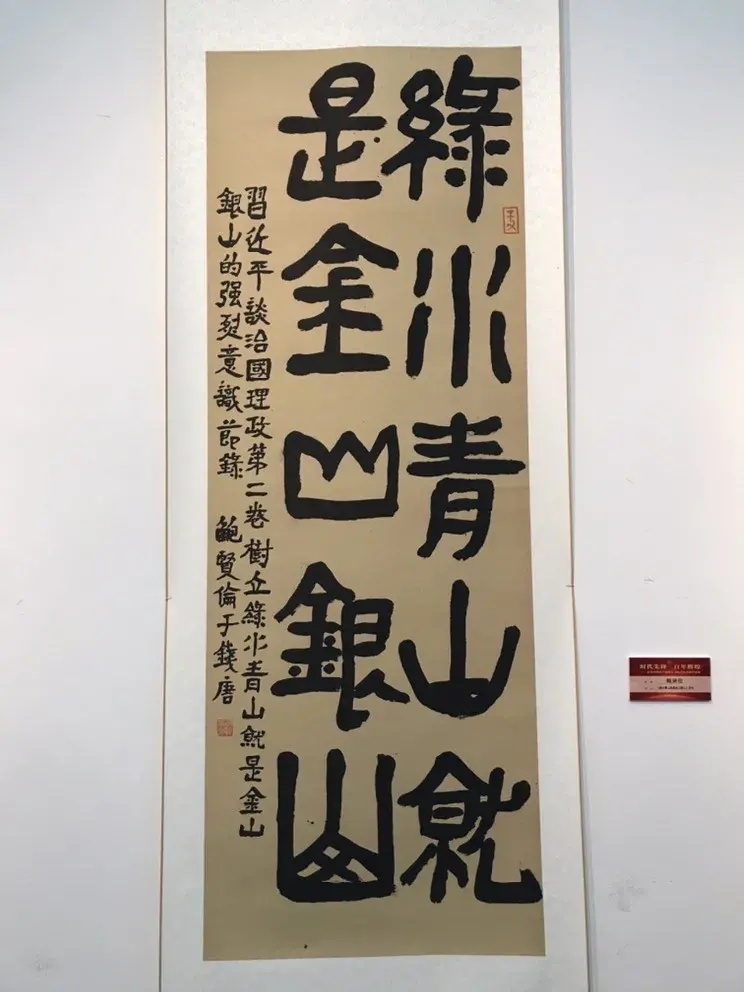 綠水青山就
是金山銀山
習近平談治國理政第二卷樹立綠水青山就是金山
銀山的强烈意識節錄 鮑賢倫于錢唐
時代先鋒 百年輝煌
鮑賢倫